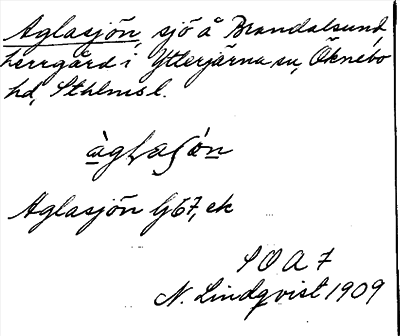 Aglasjön, sjö å Brandalsund,
herrgård i Ytterjärna sn, Öknebo
hd, Sthlms l.
àglaʃón
Aglasjön G67, ek
S O A 7
N. Lindqvist 1909